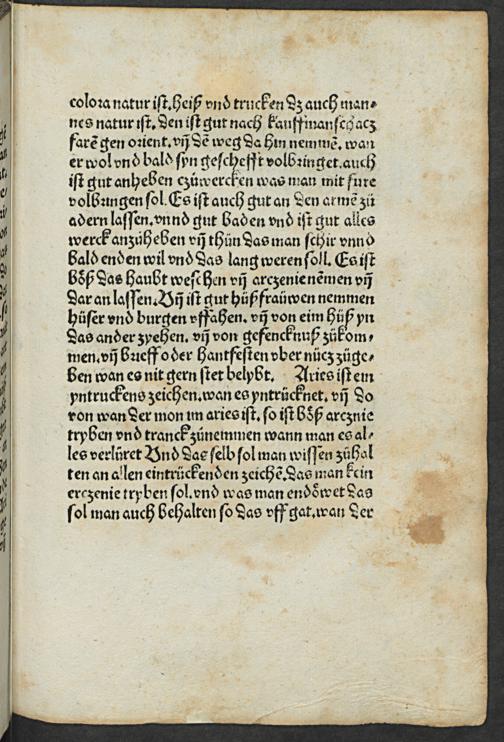 colora natur ist. heiß vnd trucken dz auch man⸗
nes natur ist. den ist gut nach kauffmanschacz
farē gen orient. vn̄ dē weg da hin nemmē. wan
er wol vnd bald syn geschefft volbringet. auch
ist gut anheben czů wercken was man mit füre
volbringen sol. Es ist auch gut an den armē zů
adern lassen. vnnd gut baden vnd ist gut alles
werck anzůheben vn̄ thůn das man schir vnnd
bald enden wil vnd das lang weren soll. Es ist
bôß das haubt weschen vn̄ arczenie nēmen vn̄
dar an lassen. Vn̄ ist gut hußfraůwen nemmen
hüser vnd burgen vffahen. vn̄ von eim hůß yn
das ander zyehen. vn̄ von gefencknuß zůkom⸗
men. vn̄ brieff oder hantfesten vber nücz zůge⸗
ben wan es nit gern stet belybt. Aries ist ein
yntruckens zeichen. wan es yntrücknet. vn̄ do
von wan der mon im aries ist. so ist bôß arcznie
tryben vnd tranck zůnemmen wann man es al⸗
les verlüret Vnd das selb sol man wissen zůhal
ten an allen eintrückenden zeichē. das man kein
erczenie tryben sol. vnd was man endôwet das
sol man auch behalten so das vff gat. wan der